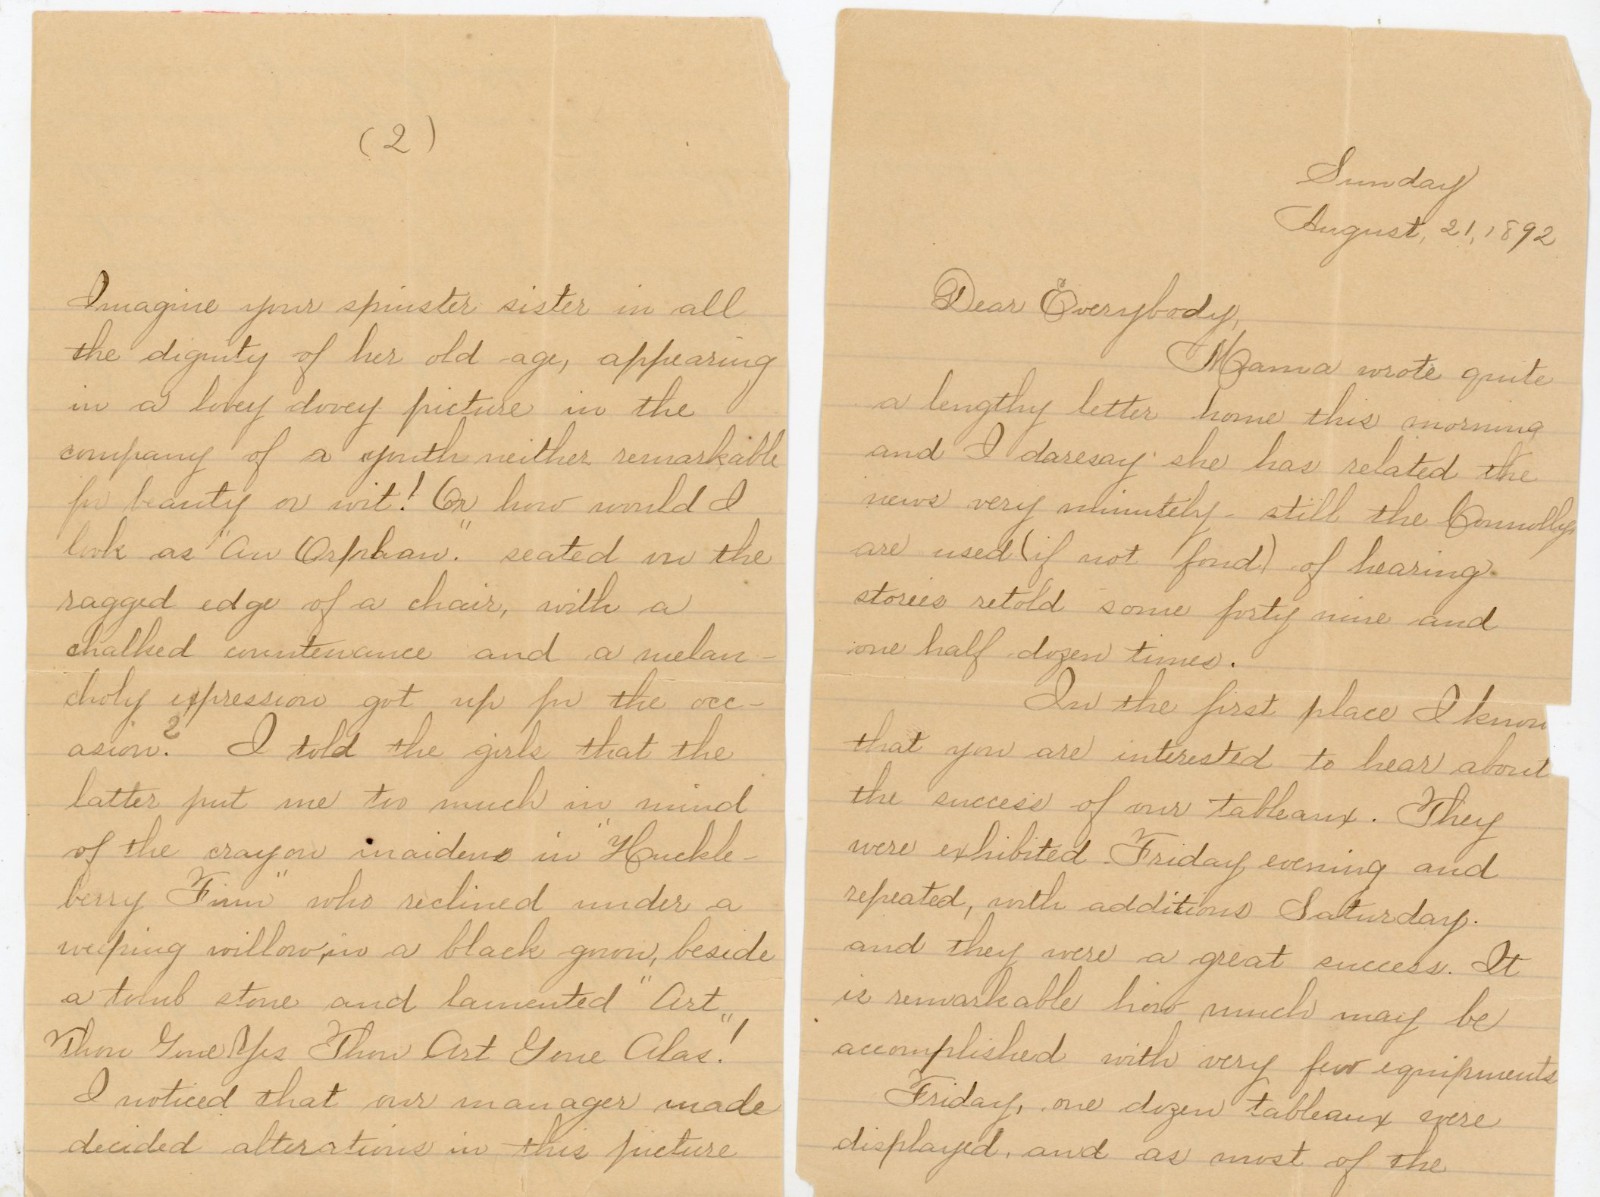 Sunday
August, 21, 1892
Dear Everybody,
Mama wrote quite
a lengthy letter home this morning
and I daresay she has related the
news very minutely - still the Connollys
are used (if not fond) of hearing
stories retold some forty nine and
one half dozen times.
In the first place I know
that you are interested to hear about
the success of our tableaux. They
were exhibited Friday evening and
repeated, with additions Saturday.
and they were a great success. It
is remarkable how much may be
accomplished with very few equipments
Friday, one dozen tableaux were
displayed, and as most of the
(2)
Imagine your spinster sister in all
the dignity of her old age, appearing
in a lovey dovey picture in the
company of a youth neither remarkable
for beauty or wit! Or how would I
look as "An Orphan." seated on the
ragged edge of a chair, with a
chalked countenance and a melan-
choly expression got up for the occ-
asion? I told the girls that the
latter put me too much in mind
of the crayon maidens in "Huckle-
berry Finn" who reclined under a
weeping willow, in a black gown, beside
a tomb stone and lamented "Art
Thou Gone Yes Thou Art Gone Alas"!
I noticed that our manager made
decided alterations in this picture